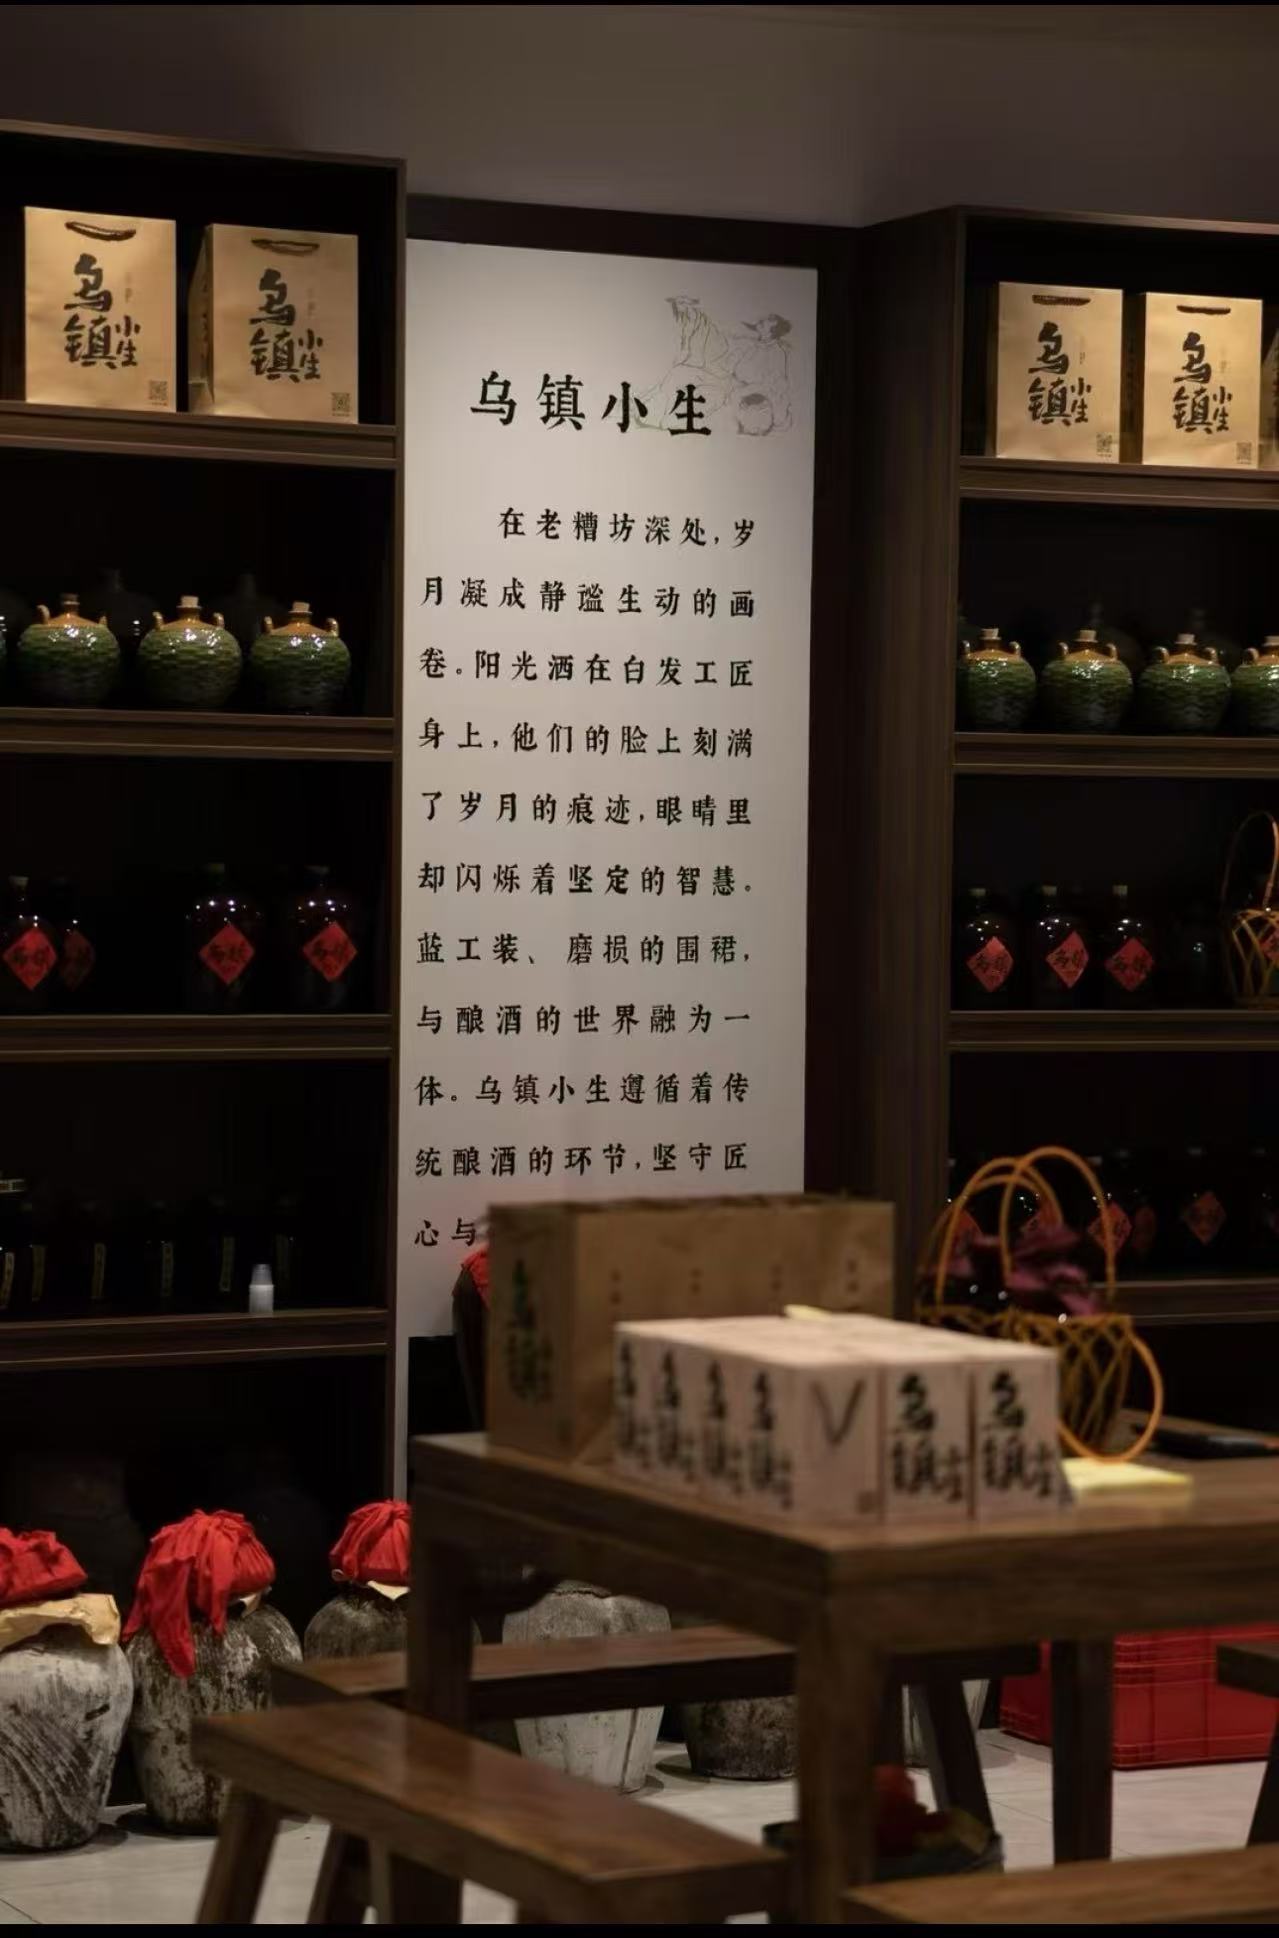 乌镇小生
乌镇小生
乌镇小生
乌镇小生
乌镇小生
在老糟坊深处,岁
月凝成静谧生动的画
卷。阳光洒在白发工匠
身上,他们的脸上刻满
了岁月的痕迹,眼睛里
却闪烁着坚定的智慧。
蓝工装、磨损的围裙,
与酿酒的世界融为一
体。乌镇小生遵循着传
统酿酒的环节,坚守匠
心与
乌镇
乌镇
乌镇
乌镇
乌镇
乌镇
乌镇小生
乌镇小生